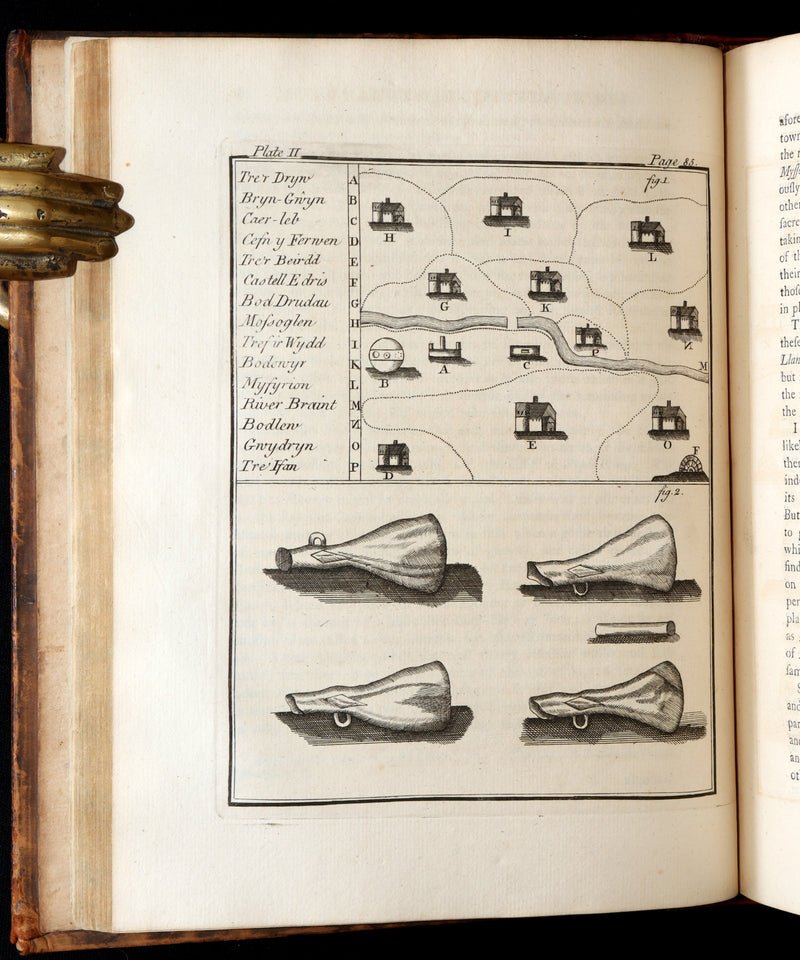 Plate II
Page 85.
Tre'r Dryw A
Bryn-Gŵyn B
Caer-leb C
Cefn y Ferwen D
Tre'r Beirdd E
Castell Edris F
Bod Drudau G
Mossoglen H
Tref ir Wydd I
Bodowyr K
Mysyrion L
River Braint M
Bodlew N
Gwydryn O
Tre Ifan P
fig.1
H
I
L
G
K
N
P
M
A
C
B
E
O
F
D
fig.2.
afore
town
the
ously
other
sacre
taking
of th
their
those
in pl
T
these
Llan
but
the
the
I
likel
them
inde
its
But
to
whi
find
on
per
pla
as
of
sam
S
and
par
and
an
ot